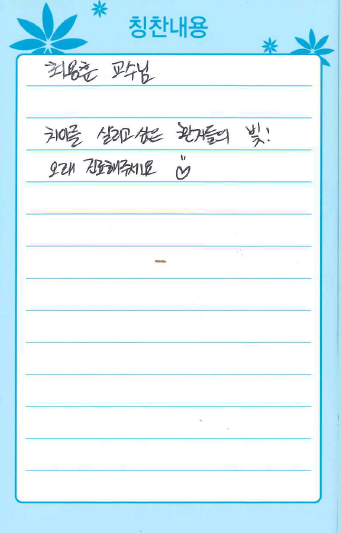 칭찬내용
최용훈 교수님
치아를 살리고 싶은 환자들의 빛!
오래 진료해주세요